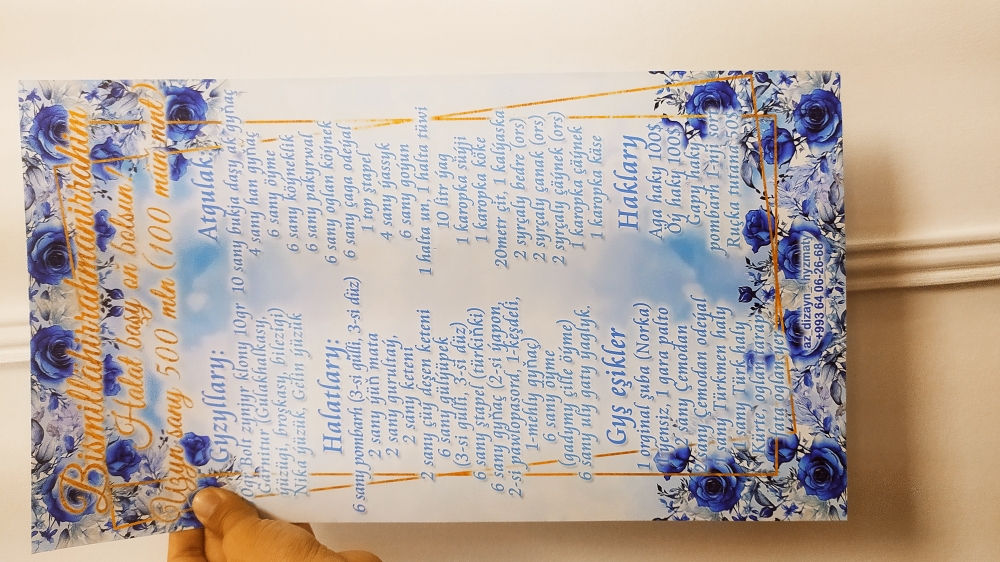 Bismillahirrahmanirrahim
Halat bagy oň bolsun!
Uzyn sany 500 mln (100 manat)
Gyzyllary:
Bolt zynjyr klony 10gr
Garnitur (Gulakhalkasy,
ýüzügi, broşkasy, bilezigi)
Nika ýüzük, Gelin ýüzük
Halatlary:
6 sany ponbarh (3-si gülli, 3-si düz)
2 sany ýüň mata
2 sany gurultaý.
2 sany keteni
2 sany çüý deşen keteni
6 sany gülýüpek
(3-si gülli, 3-si düz)
6 sany ştapel (türkiňki)
6 sany gyňaç (2-si ýapon,
2-si pawloposord, 1-keşdeli,
1 mehly gyňaç)
6 sany öýme
(gadymy çitle öýme)
6 sany uly gany ýaglyk.
Gyş eşikler
1 orginal şuba (Norka)
jiensiz, 1 gara palto
2 sany Çemodan
Çemodam odeýal
sany Türkmen haly
sany Türk haly
10 sany bukja daşy ak gyňaç
4 sany han gyýaç
6 sany öýme
6 sany köýneklik
6 sany pakyrwal
6 sany oglan köýnek
6 sany çaga odeýal
1 top ştapel
4 sany ýassyk
6 sany gorjun
1 halta un, 1 halta tüwi
10 litr ýag
1 karopka süýji
1 karopka köke
20metr çit, 1 kalýaska
2 syrçaly bedre (ors)
2 syrçaly çanak (ors)
2 syrçaly çäýnek (ors)
1 karopka çäýnek
1 karopka käse
Haklary
Aga haky 100$
Öý haky 100$
Gapy haky
az_dizayn_hyzmaty
+993 64 06-26-68